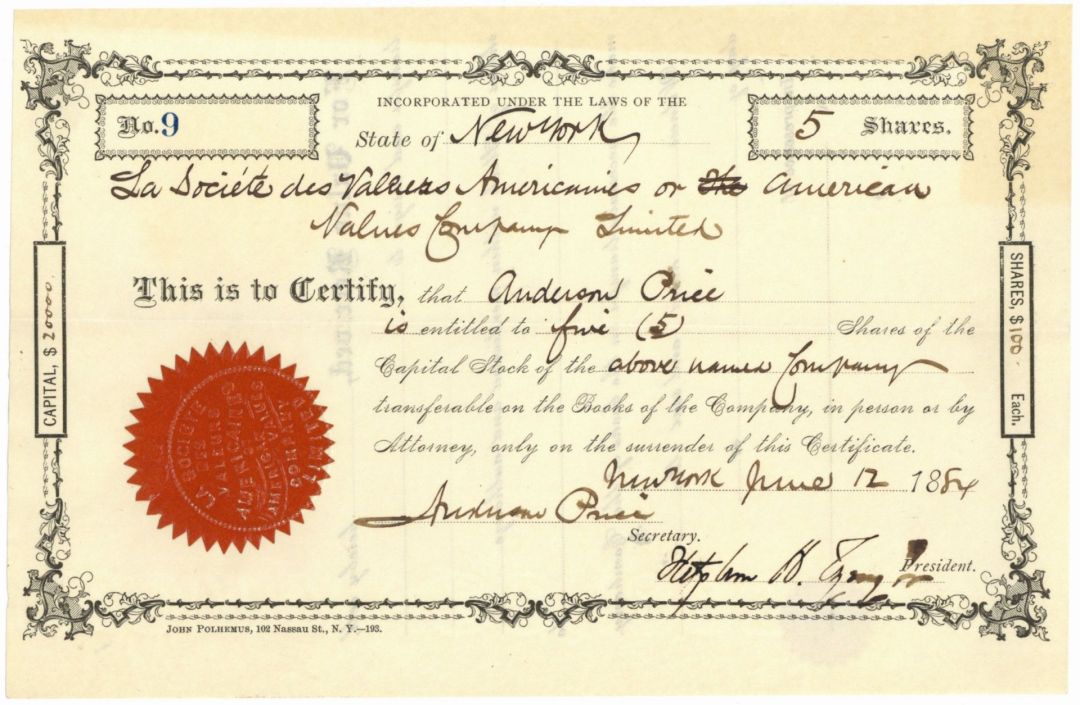 INCORPORATED UNDER THE LAWS OF THE
No. 9
State of New York
5 Shares.
La Société des Valeurs Americaines or the American
Values Company Limited
This is to Certify, that Anderson Price
is entitled to five (5) Shares of the
Capital Stock of the above named Company
transferable on the Books of the Company, in person or by
Attorney, only on the surrender of this Certificate.
New York June 12 1884
Anderson Price
Secretary.
Stephen H.
President.
CAPITAL, $ 20000
SHARES, $ 100. Each.
LA SOCIETE
DES
VALEURS
AMERICAINES
COMPANY
LIMITED
JOHN POLHEMUS, 102 Nassau St., N. Y.—193.